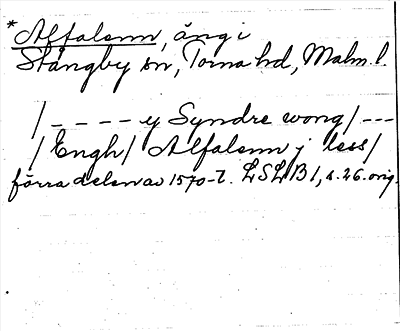 *Alfalann, äng i
Stångby sn, Torna hd, Malm. l.
/ - - - - y Syndre wong / - - -
/ Engh / Alfalann j less /
förra delen av 1570-t. LSLB 1, s. 26. orig.